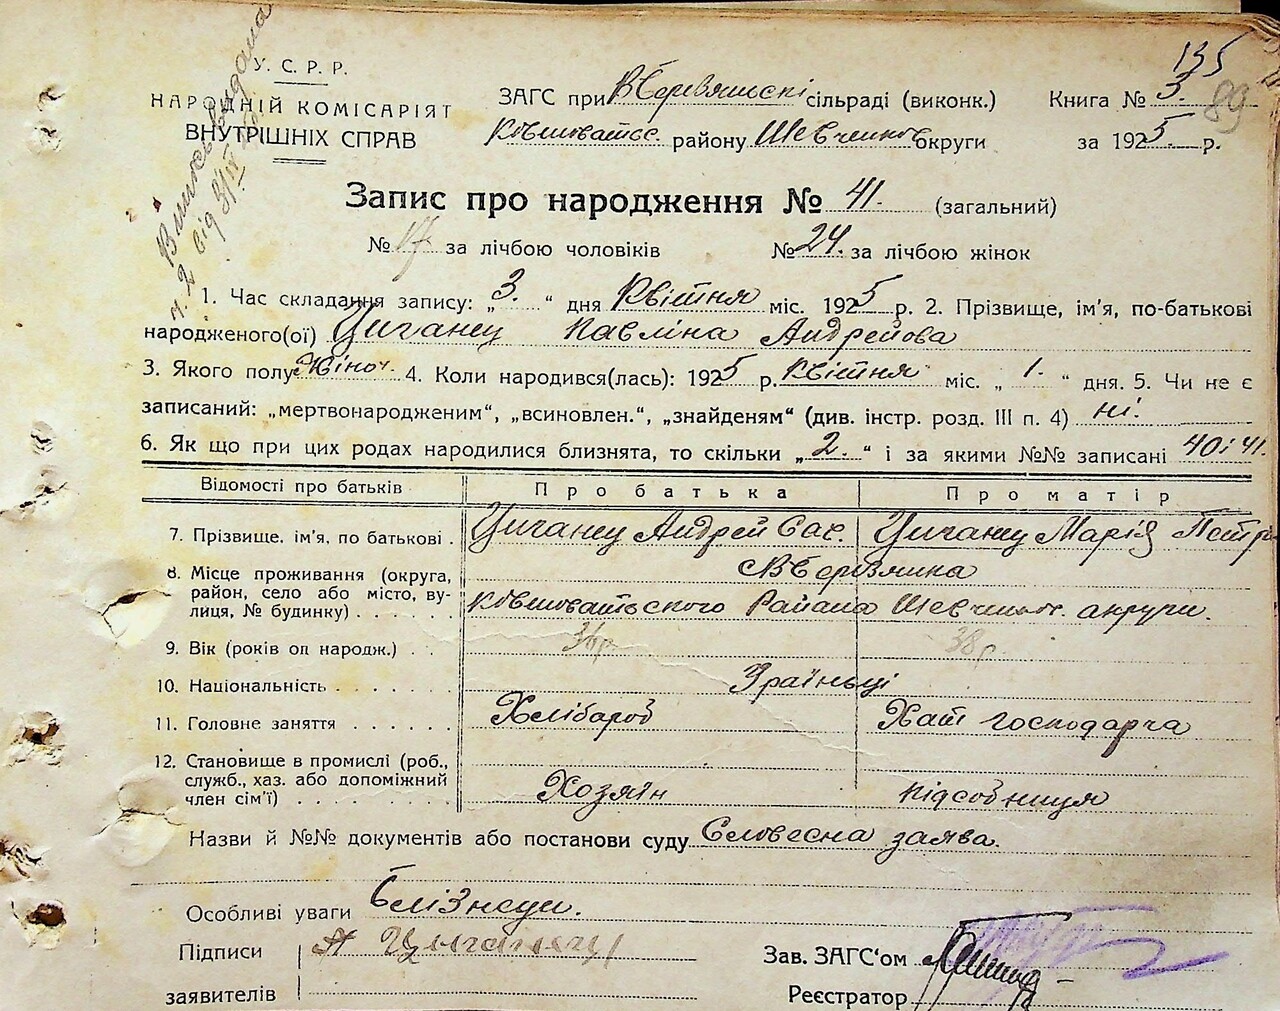 135
89
Виписка видана
ч. 2 від 3/IV
У. С. Р. Р.
НАРОДНІЙ КОМІСАРІЯТ
ВНУТРІШНІХ СПРАВ
ЗАГС при В Березянскі сільраді (виконк.) Книга № 3.
Ковшоватсс. району Шевченков округи за 1925 р.
Запис про народження № 41. (загальний)
№ 17 за лічбою чоловіків № 24. за лічбою жінок
1. Час складання запису: „3.“ дня Квітня міс. 1925 р. 2. Прізвище, ім'я, по-батькові
народженого(ої) Циганец Павліна Андрейова
3. Якого полу Жіноч. 4. Коли народився(лась): 1925 р. Квітня міс. „1.“ дня. 5. Чи не є
записаний: „мертвонародженим“, „всиновлен.“, „знайденям“ (див. інстр. розд. III п. 4) ні.
6. Як що при цих родах народилися близнята, то скільки „2.“ і за якими №№ записані 40 і 41.
Відомості про батьків Про батька Про матір
7. Прізвище, ім'я, по батькові . Циганец Андрей Сас. Циганец Марія Петр
8. Місце проживання (округа, В Березянка
район, село або місто, ву-
лиця, № будинку) . . . . . . Ковшоватського Района Шевченков. акруги.
9. Вік (років од народж.) . . 36р 38р.
10. Національність . . . . . . . Зраіньці
11. Головне заняття . . . . . . Хлібароб Хат господарча
12. Становище в промислі (роб.,
служб., хаз. або допоміжний
член сім'ї) . . . . . . . . . Хозяїн підсобниця
Назви й №№ документів або постанови суду Словесна заява.
Особливі уваги Блізнеци.
Підписи А Циганец
заявителів
Зав. ЗАГС'ом
Реєстратор